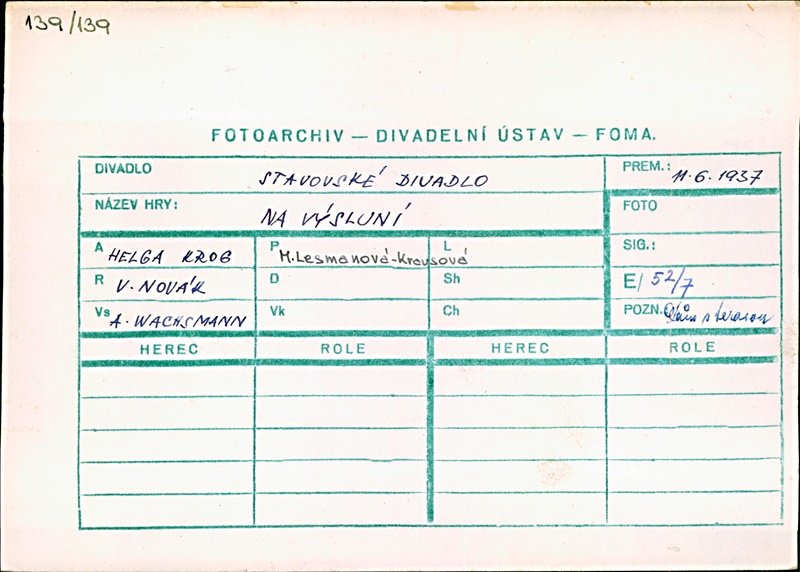 139/139
FOTOARCHIV — DIVADELNÍ ÚSTAV — FOMA.
DIVADLO STAVOVSKÉ DIVADLO PREM.: 11.6.1937
NÁZEV HRY: NA VÝSLUNÍ FOTO
A HELGA KROG P M.Lesmanová-Krausová L SIG.:
R V. NOVÁK D Sh E/ 52/7
Vs A. WACHSMANN Vk Ch POZN. s terasou
HEREC ROLE HEREC ROLE